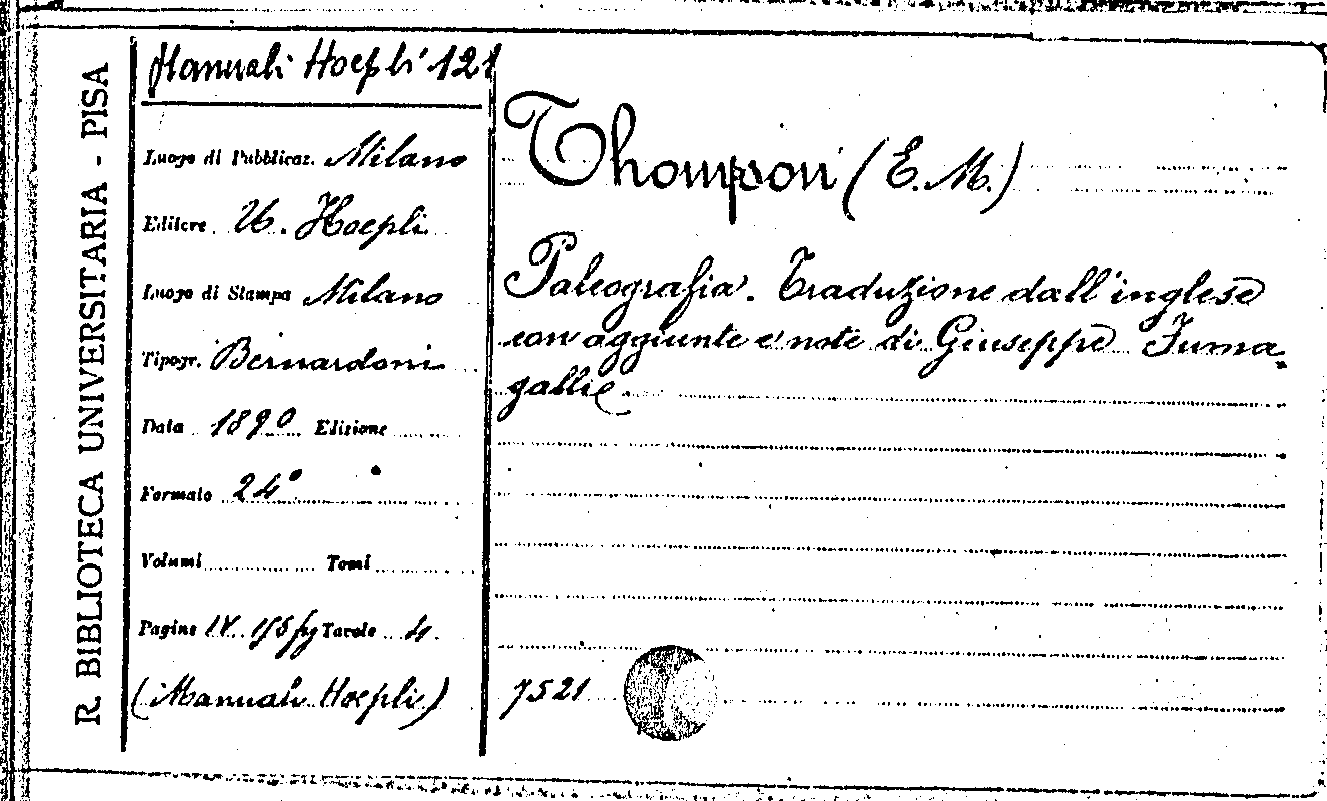 R. BIBLIOTECA UNIVERSITARIA - PISA
Manuali Hoepli 121
Luogo di Pubblicaz. Milano
Editore U. Hoepli
Luogo di Stampa Milano
Tipogr. Bernardoni
Data 1890 Edizione
Formato 24°
Volumi Tomi
Pagine IV. 156 fig Tavole 4.
(Manuali Hoepli)
Thompson (E. M.)
Paleografia. Traduzione dall'inglese
con aggiunte e note di Giuseppe Fuma-
galli
7521